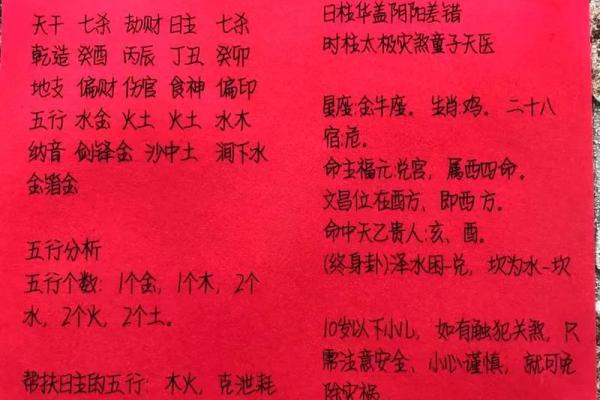 天干 七杀 劫财 日主 七杀
乾造 癸酉 丙辰 丁丑 癸卯
地支 偏财 伤官 食神 偏印
五行 水金 火土 火土 水木
纳音 剑锋金 沙中土 涧下水
金箔金
五行分析
五行个数: 1个金, 1个木, 2个
水, 2个火, 2个土。
帮扶日主的五行: 木火, 克泄耗
日柱华盖阴阳差错
时柱太极灾煞童子天医
星座:金牛座。 生肖:鸡。 二十八
宿:危。
命主福元:兑宫, 属西四命。
文昌位在酉方、即西方。
命中天乙贵人:亥、酉。
(终身卦)泽水困-兑, 坎为水-坎
10岁以下小儿, 如有触犯关煞, 只
需注意安全、小心谨慎, 就可免
除灾祸